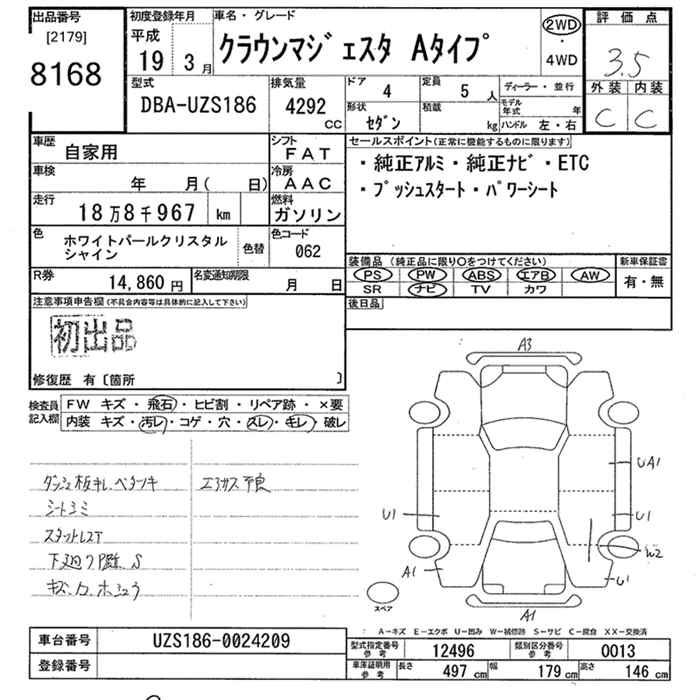 出品番号
[2179]
8168
初度登録年月
平成
19年3月
車名・グレード
クラウンマジェスタ Aタイプ
2WD
・
4WD
評価点
3.5
外装 内装
C C
型式
DBA-UZS186
排気量
4292
CC
ドア
4
定員
5 人
形状
セダン
積載
kg
ディーラー・並行
モデル年式 年
ハンドル 左・右
車歴
自家用
シフト
FAT
車検
年 月( 日)
冷房
AAC
走行
18万8千967 km
燃料
ガソリン
色
ホワイトパールクリスタル
シャイン
色替
色コード
062
R券
14,860 円
名変通知期限
月 日
セールスポイント(正常に機能するものに限ります)
・純正アルミ・純正ナビ・ETC
・プッシュスタート・パワーシート
装備品 (純正品に限り○をつけてください)
PS PW ABS エアB AW
SR ナビ TV カワ
新車保証書
有・無
後日品
注意事項申告欄(不具合内容等は具体的に記入して下さい)
初出品
修復歴 有〔箇所 〕
検査員
記入欄
FW キズ・飛石・ヒビ割・リペア跡・×要
内装 キズ・汚レ・コゲ・穴・スレ・キレ・破レ
シートヨミ
A3
UA1
U1
U1
W2
A1
U1
A1
スペア
A-キズ E-エクボ U-凹み W-補修跡 S-サビ C-腐食 XX-交換済
車台番号
UZS186-0024209
登録番号
型式指定番号
参考
12496
類別区分番号
参考
0013
車庫証明用
参考
長さ 497 cm
幅 179 cm
高さ 146 cm